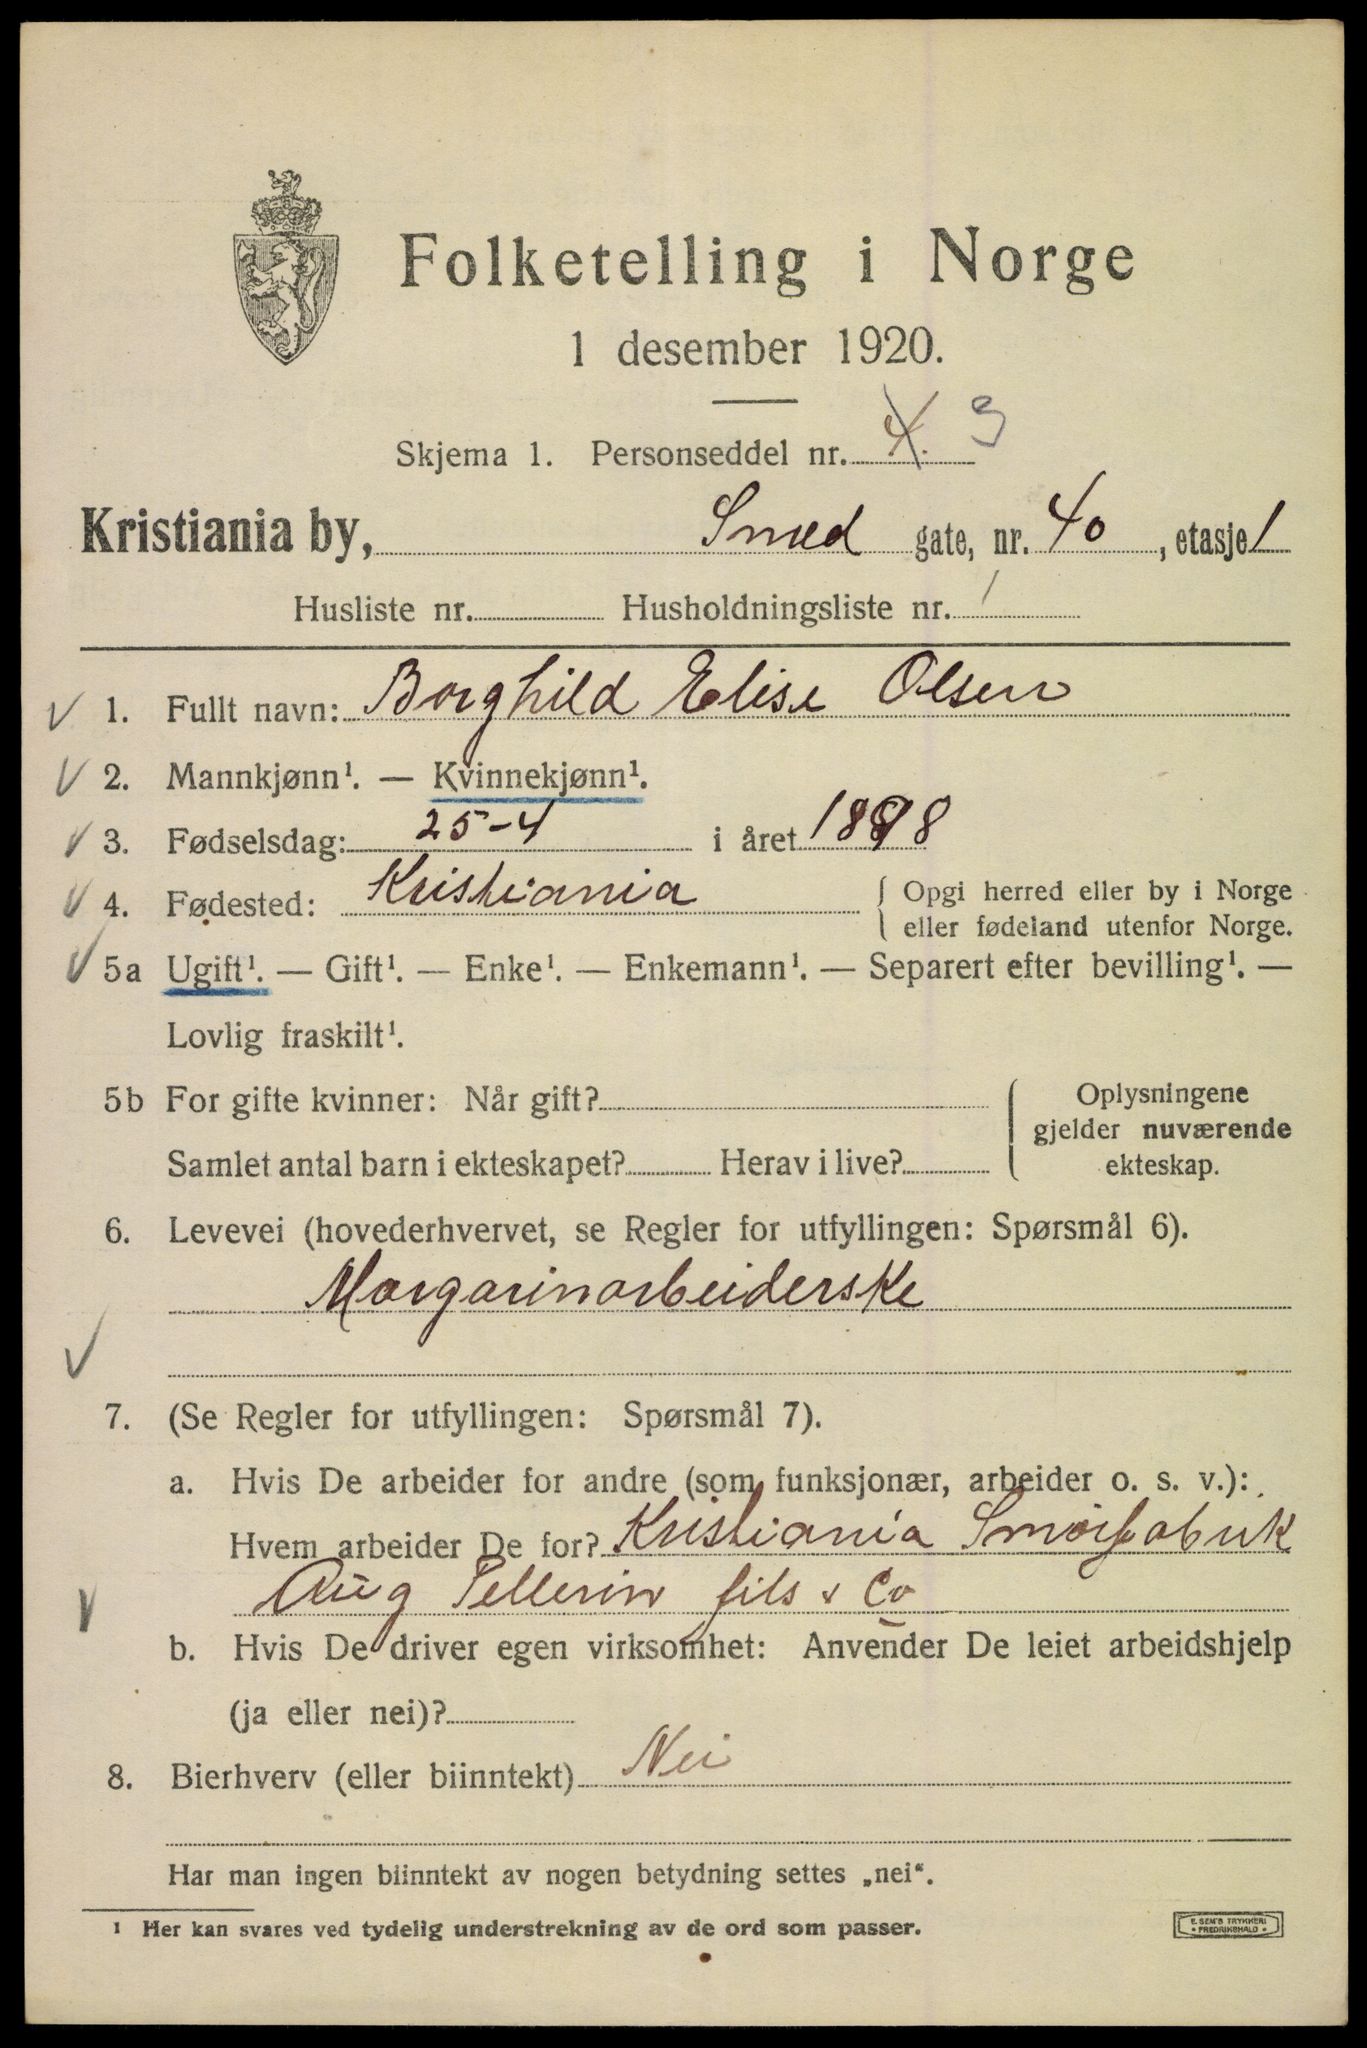 Folketelling i Norge
1 desember 1920.
Skjema 1. Personseddel nr. 4. 3
Kristiania by, Smed gate, nr. 40, etasje 1
Husliste nr. Husholdningsliste nr. 1
1. Fullt navn: Borghild Elise Olsen
2. Mannkjønn¹. — Kvinnekjønn¹.
3. Fødselsdag: 25-4 i året 1898
4. Fødested: Kristiania { Opgi herred eller by i Norge
eller fødeland utenfor Norge.
5a Ugift¹. — Gift¹. — Enke¹. — Enkemann¹. — Separert efter bevilling¹. —
Lovlig fraskilt¹.
5b For gifte kvinner: Når gift? { Oplysningene
gjelder nuværende
Samlet antal barn i ekteskapet? Herav i live? ekteskap.
6. Levevei (hovederhvervet, se Regler for utfyllingen: Spørsmål 6).
Margarinarbeiderske
7. (Se Regler for utfyllingen: Spørsmål 7).
a. Hvis De arbeider for andre (som funksjonær, arbeider o. s. v.):
Hvem arbeider De for? Kristiania Smørfabrik
Aug Pellerin fils & Co
b. Hvis De driver egen virksomhet: Anvender De leiet arbeidshjelp
(ja eller nei)?
8. Bierhverv (eller biinntekt) Nei
Har man ingen biinntekt av nogen betydning settes „nei“.
¹ Her kan svares ved tydelig understrekning av de ord som passer.
E. SEM'S TRYKKERI
• FREDRIKSHALD •